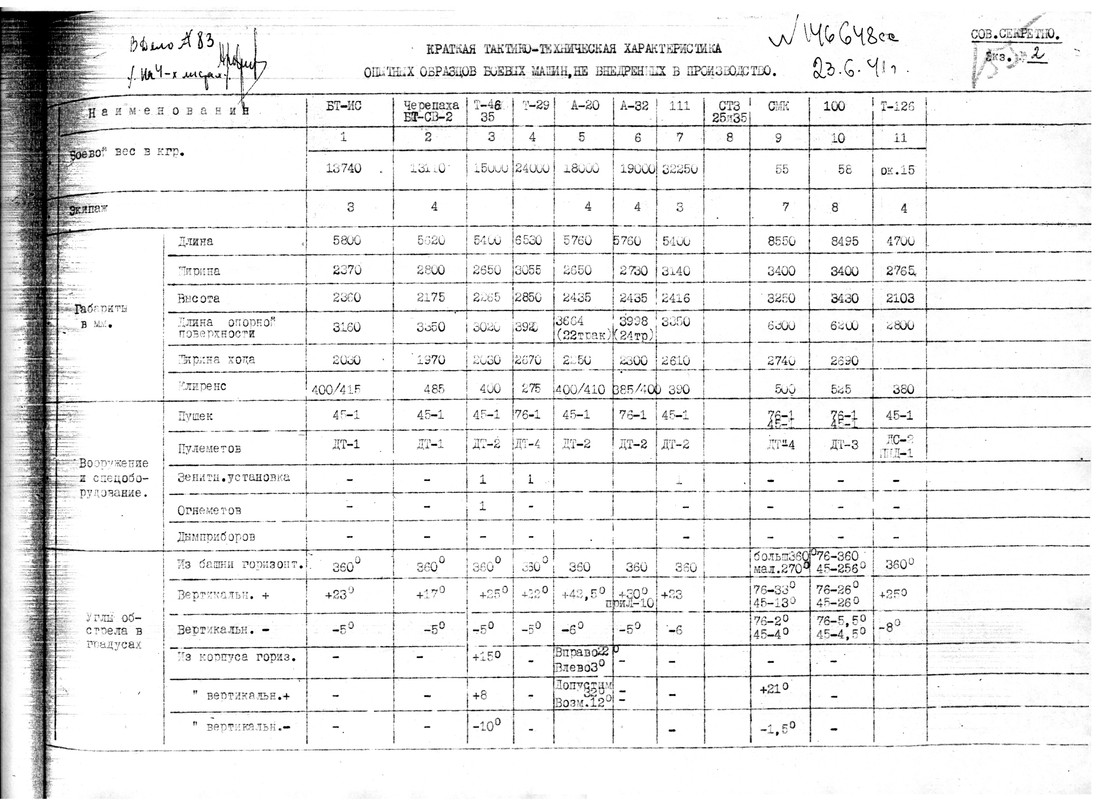 В дело № 83
№ 146648сс
СОВ.СЕКРЕТНО.
КРАТКАЯ ТАКТИКО-ТЕХНИЧЕСКАЯ ХАРАКТЕРИСТИКА
Экз. № 2
/на 4-х листах/
ОПЫТНЫХ ОБРАЗЦОВ БОЕВЫХ МАШИН, НЕ ВНЕДРЕННЫХ В ПРОИЗВОДСТВО.
23.6.41г.
Наименования БТ-ИС Черепаха БТ-СВ-2 Т-46 35 Т-29 А-20 А-32 111 СТЗ 25и35 СМК 100 Т-126
1 2 3 4 5 6 7 8 9 10 11
Боевой вес в кгр. 13740 15000 24000 18000 19000 32250 55 58 ок.15
Экипаж 3 4 4 4 3 7 8 4
Габариты в мм.
Длина 5800 5620 5400 6530 5760 5760 5400 8550 8495 4700
Ширина 2370 2800 2650 3055 2650 2730 3140 3400 3400 2765
Высота 2360 2175 2265 2850 2435 2435 2416 3250 3430 2103
Длина опорной поверхности 3160 3350 3020 392 3664 (22трак) 3998 (24тр) 3350 6300 6200 2800
Ширина хода 2030 1970 2030 2670 2250 2300 2610 2740 2690
Клиренс 400/415 485 400 275 400/410 385/400 390 500 525 380
Вооружение и спецобо-рудование.
Пушек 45-1 45-1 45-1 76-1 45-1 76-1 45-1 76-1 45-1 76-1 45-1 45-1
Пулеметов ДТ-1 ДТ-1 ДТ-2 ДТ-4 ДТ-2 ДТ-2 ДТ-2 ДТ-4 ДТ-3
Зенитн.установка - - 1 1 1 - - -
Огнеметов - - 1 - - - - -
Дымприборов - - - - - - - -
Углы об-стрела в градусах
Из башни горизонт. 360° 360° 360° 360° 360 360 360 больш360° мал.270° 76-360 45-256° 360°
Вертикальн. + +23° +17° +25° +22° +42,5° +30° при -10 +23 76-33° 45-13° 76-26° 45-26° +25°
Вертикальн. - -5° -5° -5° -5° -6° -5° -6 76-2° 45-4° 76-5,5° 45-4,5° -8°
Из корпуса гориз. - - +15° - Вправо22° Влево3° - - - -
" вертикальн.+ - - +8 - Допустим 32° Возм.12° - - +21° -
" вертикальн.- - - -10° - - -1,5° -